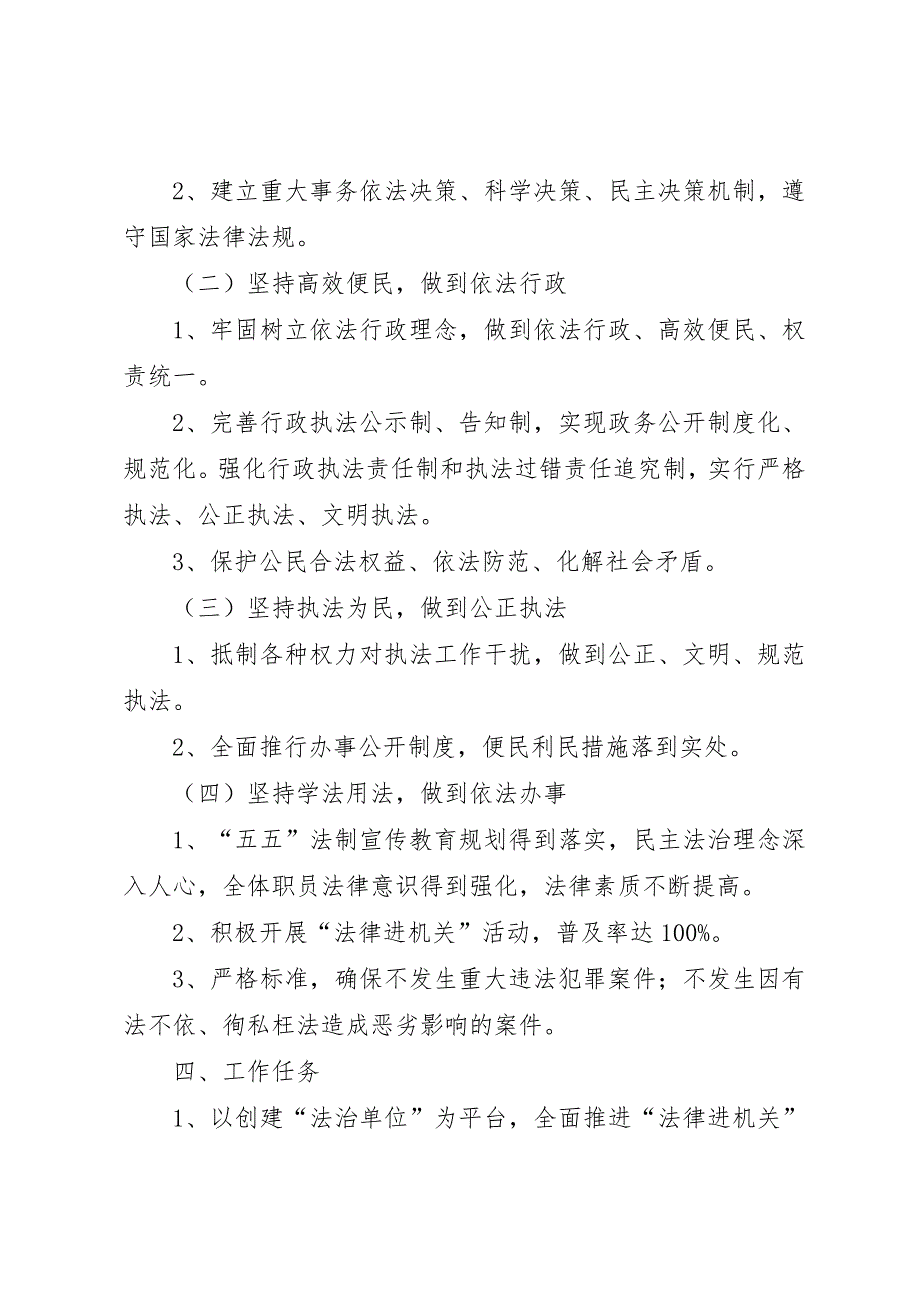 2、建立重大事务依法决策、科学决策、民主决策机制，遵
守国家法律法规。
（二）坚持高效便民，做到依法行政
1、牢固树立依法行政理念，做到依法行政、高效便民、权
责统一。
2、完善行政执法公示制、告知制，实现政务公开制度化、
规范化。强化行政执法责任制和执法过错责任追究制，实行严格
执法、公正执法、文明执法。
3、保护公民合法权益、依法防范、化解社会矛盾。
（三）坚持执法为民，做到公正执法
1、抵制各种权力对执法工作干扰，做到公正、文明、规范
执法。
2、全面推行办事公开制度，便民利民措施落到实处。
（四）坚持学法用法，做到依法办事
1、“五五”法制宣传教育规划得到落实，民主法治理念深
入人心，全体职员法律意识得到强化，法律素质不断提高。
2、积极开展“法律进机关”活动，普及率达 100%。
3、严格标准，确保不发生重大违法犯罪案件；不发生因有
法不依、徇私枉法造成恶劣影响的案件。
四、工作任务
1、以创建“法治单位”为平台，全面推进“法律进机关”